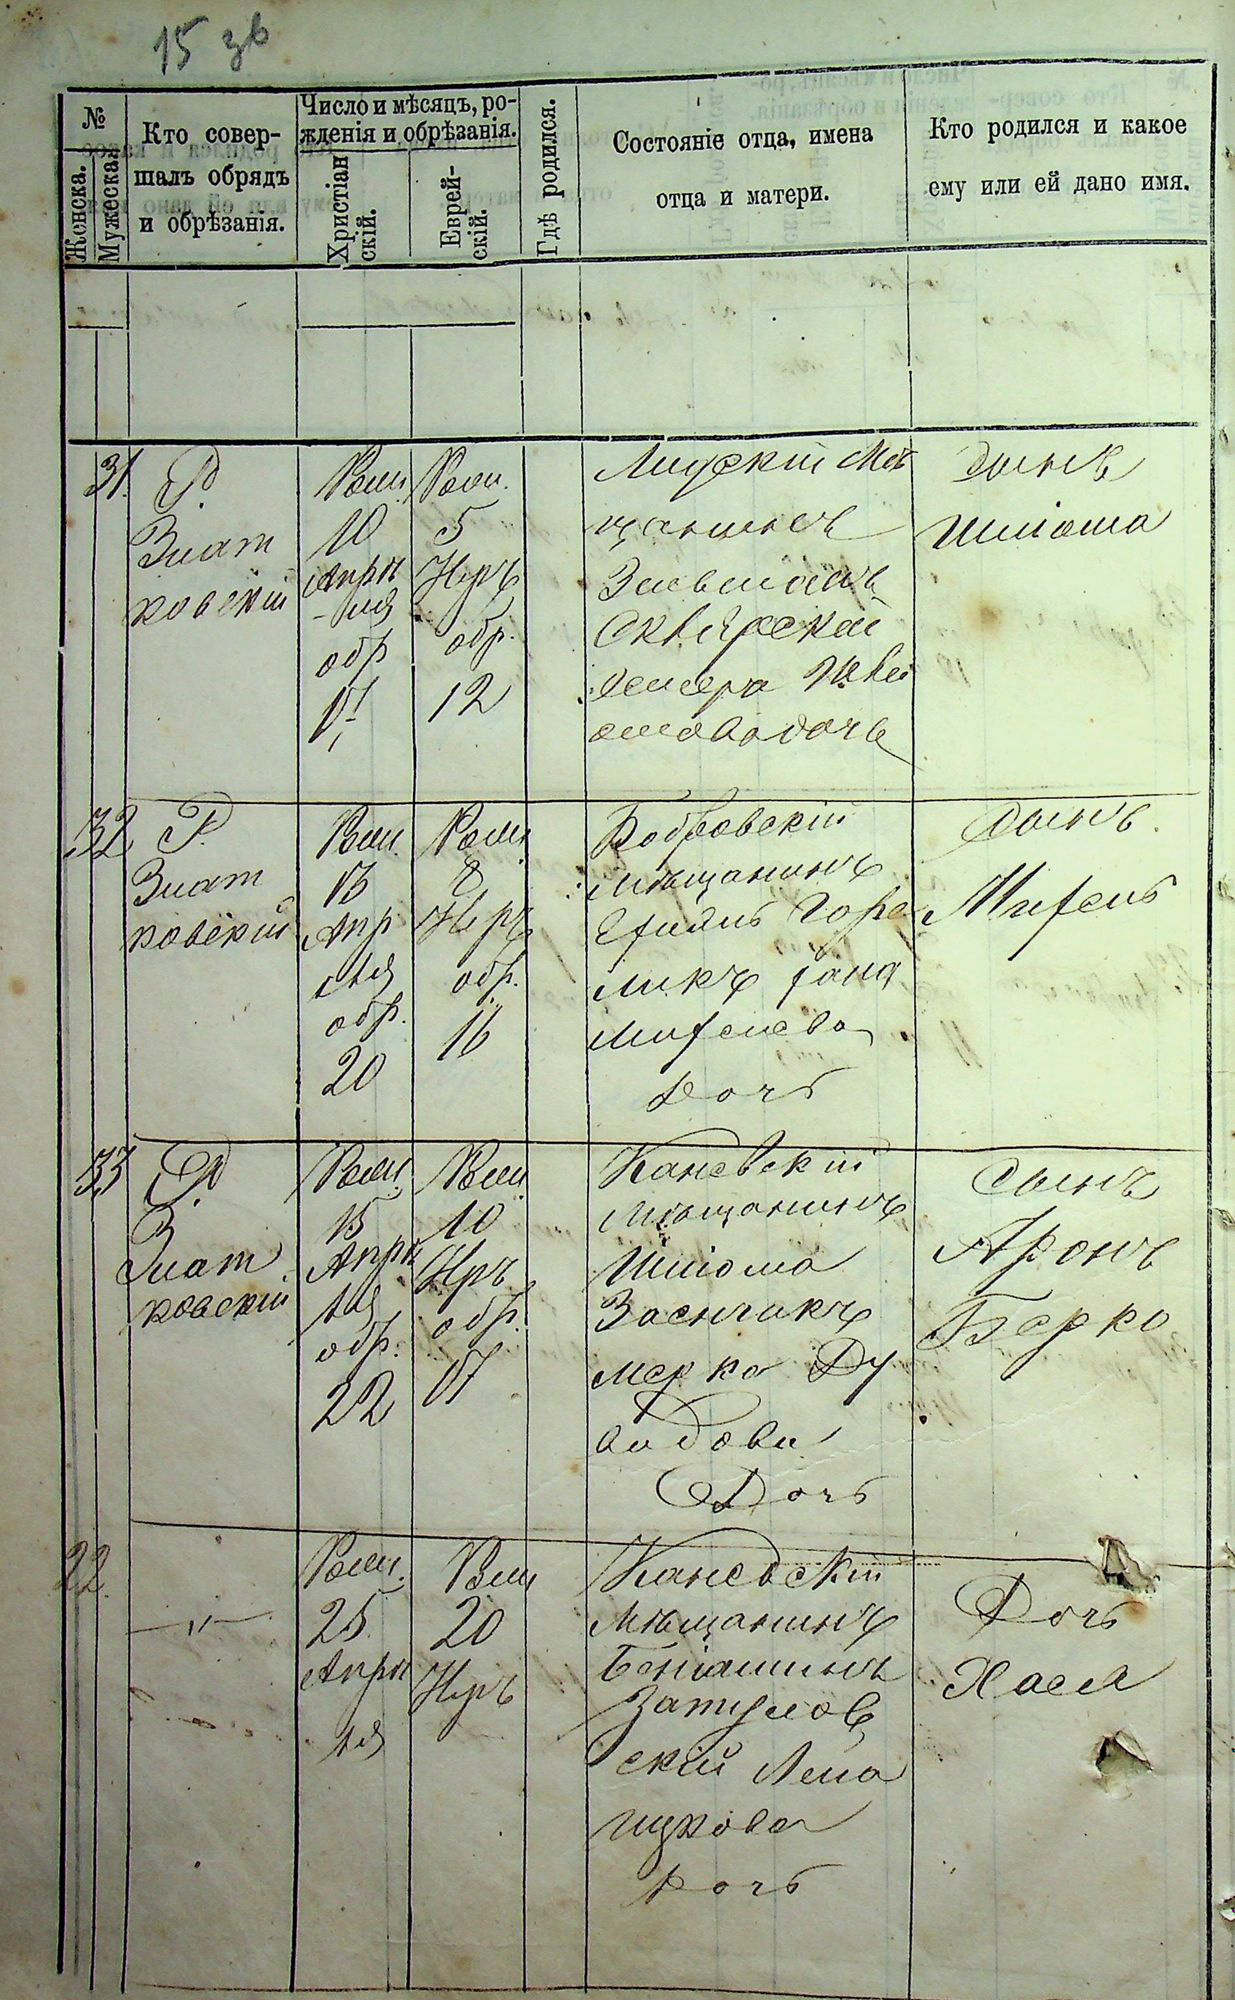 15 зв
№
Женска.
Мужеска.
Кто совер-
шалъ обрядъ
и обрѣзанія.
Число и мѣсяцъ, ро-
жденія и обрѣзанія.
Христіан
скій.
Еврей-
скій.
Гдѣ родился.
Состояніе отца, имена
отца и матери.
Кто родился и какое
ему или ей дано имя.
31.
Р.
Злат
ковскій
Роди.
10
Апрѣ
-ля
обр
17
Роди.
5
Иръ
обр.
12
Лидскій Мѣ
щанинъ
Зысьманъ
Сквирскій
Ицкова
дочь
Сынъ
Шліома
32
Р.
Злат
ковскій
Роди.
13
Апр
ѣля
обр.
20
Роди.
8
Иръ
обр.
16
Бобровскій
мѣщанинъ
Горе
ликъ хана
михелева
дочь
Сынъ
Михель
33
Р.
Злат
ковскій
Роди.
15
Апрѣ
ля
обр.
22
Роди.
10
Иръ
обр.
17
Каневскій
мѣщанинъ
Шліома
Заенчикъ
мерка Ду
видова
Дочь
Сынъ
Аронъ
Берко
22
—"—
Роди.
25
Апрѣ
ля
Роди
20
Иръ
Каневскій
мѣщанинъ
Беніаминъ
Затулов
скій Леа
ицкова
дочь
Дочь
Хася